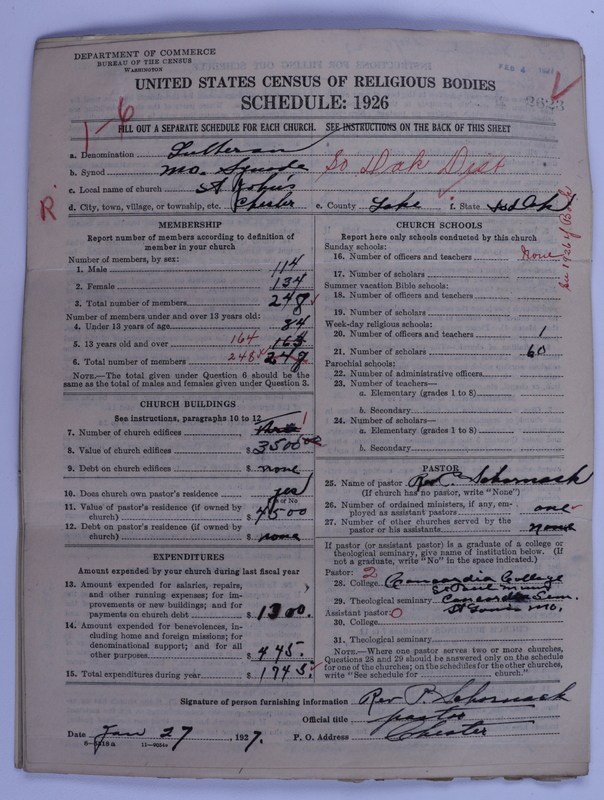 DEPARTMENT OF COMMERCE
BUREAU OF THE CENSUS
WASHINGTON
UNITED STATES CENSUS OF RELIGIOUS BODIES
SCHEDULE: 1926
1-6
FILL OUT A SEPARATE SCHEDULE FOR EACH CHURCH. SEE INSTRUCTIONS ON THE BACK OF THIS SHEET
a. Denomination Lutheran
b. Synod Mo. Synode So Dak Dist
c. Local name of church St John's
d. City, town, village, or township, etc. Chester e. County Lake f. State So Dak
R
MEMBERSHIP
Report number of members according to definition of
member in your church
Number of members, by sex:
1. Male 114
2. Female 134
3. Total number of members 248
Number of members under and over 13 years old:
4. Under 13 years of age 84
5. 13 years old and over 164
6. Total number of members 248 248
NOTE.—The total given under Question 6 should be the
same as the total of males and females given under Question 3.
CHURCH BUILDINGS
See instructions, paragraphs 10 to 12
7. Number of church edifices 1
8. Value of church edifices $ 3500
9. Debt on church edifices $ none
10. Does church own pastor's residence yes
Yes or No
11. Value of pastor's residence (if owned by
church) $ 4500
12. Debt on pastor's residence (if owned by
church) $ none
EXPENDITURES
Amount expended by your church during last fiscal year
13. Amount expended for salaries, repairs,
and other running expenses; for im-
provements or new buildings; and for
payments on church debt $ 1300.
14. Amount expended for benevolences, in-
cluding home and foreign missions; for
denominational support; and for all
other purposes $ 445.
15. Total expenditures during year $ 1745.
CHURCH SCHOOLS
Report here only schools conducted by this church
Sunday schools:
16. Number of officers and teachers None
17. Number of scholars
Summer vacation Bible schools:
18. Number of officers and teachers
19. Number of scholars
Week-day religious schools:
20. Number of officers and teachers 1
21. Number of scholars 60
Parochial schools:
22. Number of administrative officers
23. Number of teachers—
a. Elementary (grades 1 to 8)
b. Secondary
24. Number of scholars—
a. Elementary (grades 1 to 8)
b. Secondary
PASTOR
25. Name of pastor Rev. P. Schornack
(If church has no pastor, write "None")
26. Number of ordained ministers, if any, em-
ployed as assistant pastors one
27. Number of other churches served by the
pastor or his assistants none
If pastor (or assistant pastor) is a graduate of a college or
theological seminary, give name of institution below. (If
not a graduate, write "No" in the space indicated.)
Pastor: 2
28. College Concordia College
St Paul Minn
29. Theological seminary Concordia Sem.
Assistant pastor: 0 St Louis Mo.
30. College
31. Theological seminary
NOTE.—Where one pastor serves two or more churches,
Questions 28 and 29 should be answered only on the schedule
for one of the churches; on the schedules for the other churches,
write "See schedule for church."
Signature of person furnishing information Rev P. Schornack
Official title pastor
Date Jan 27, 1927. P. O. Address Chester